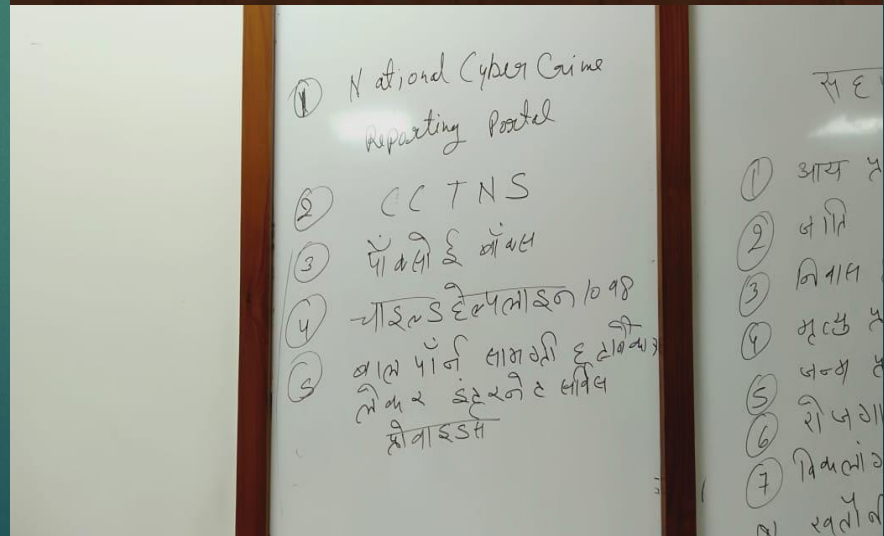 ① National Cyber Crime
Reporting Portal
② CCTNS
③ पॉक्सो ई बॉक्स
④ चाइल्ड हेल्पलाइन 1098
⑤ बाल पॉर्न सामग्री हटाने का
लेकर इंटरनेट सर्विस
प्रोवाइडर्स
① आय
② जाति
③ निवास
④ मृत्यु
⑤ जन्म
⑥
⑦